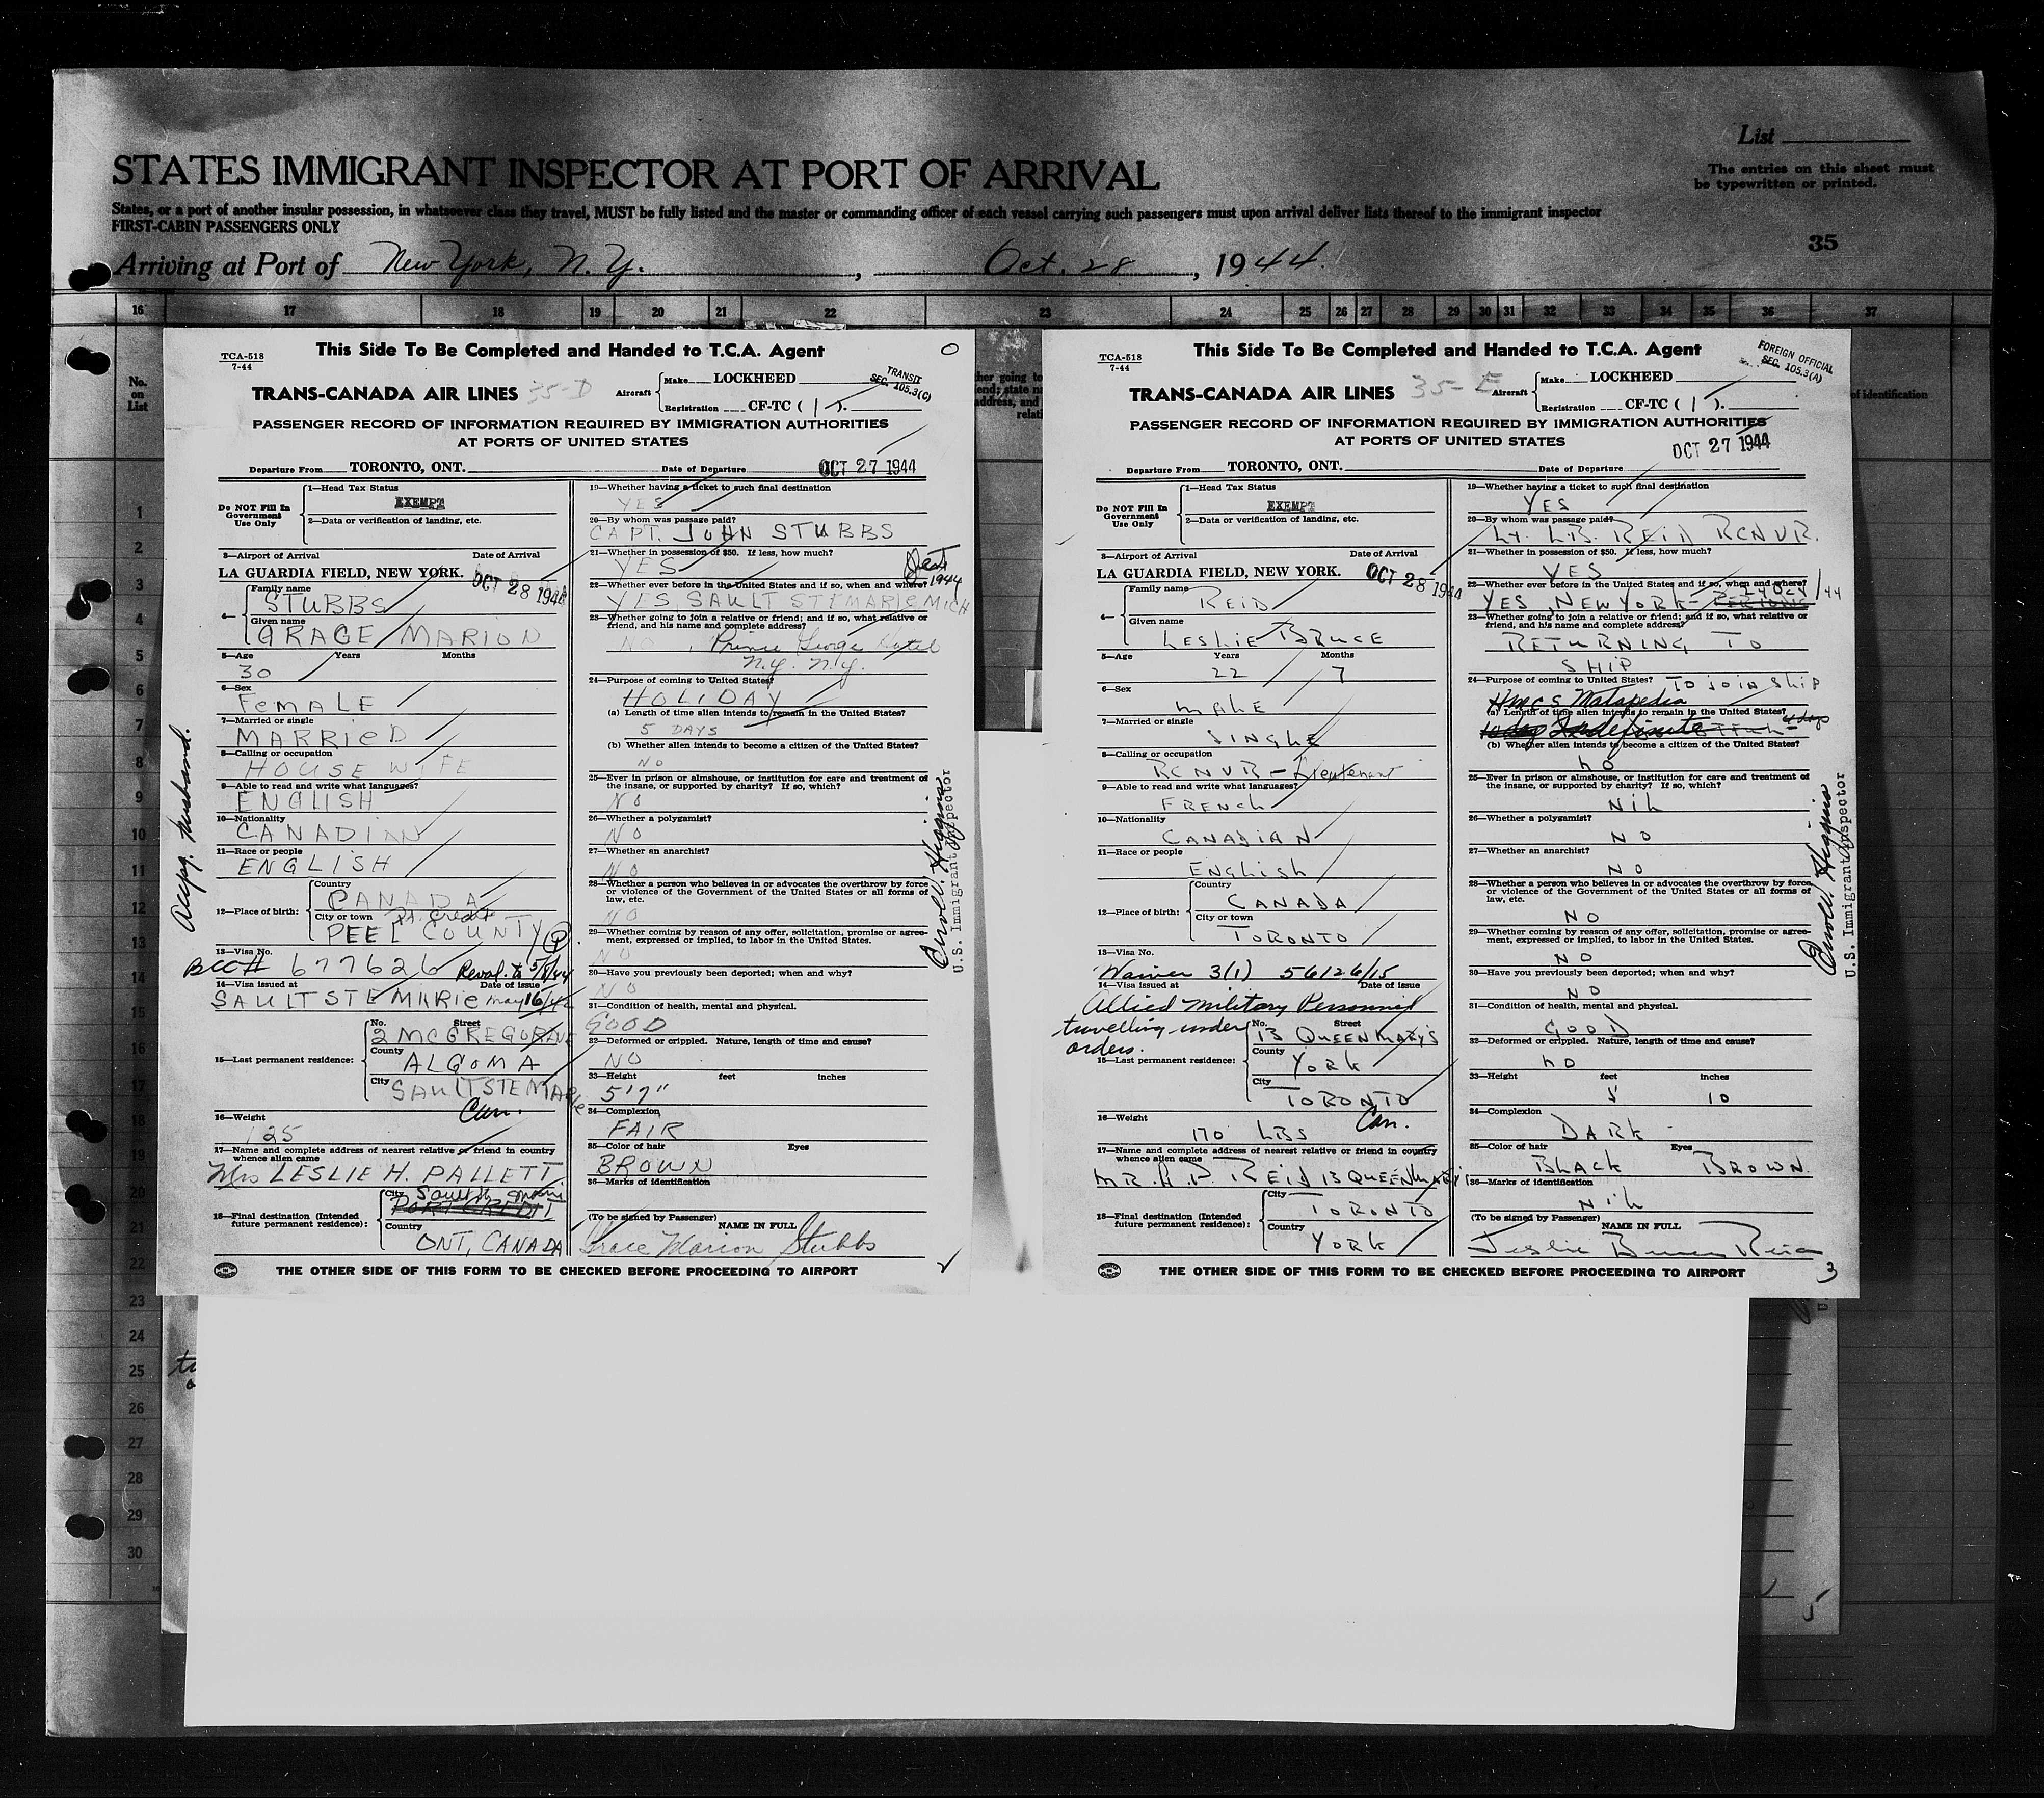 List
STATES IMMIGRANT INSPECTOR AT PORT OF ARRIVAL
The entries on this sheet must
be typewritten or printed.
States, or a port of another insular possession, in whatsoever class they travel, MUST be fully listed and the master or commanding officer of each vessel carrying such passengers must upon arrival deliver lists thereof to the immigrant inspector
FIRST-CABIN PASSENGERS ONLY
35
Arriving at Port of New York, N.Y., Oct. 28, 1944
16 17 18 19 20 21 22 23 24 25 26 27 28 29 30 31 32 33 34 35 36 37
No.
on
List
1
2
3
4
5
6
7
8
9
10
11
12
13
14
15
16
17
18
19
20
21
22
23
24
25
26
27
28
29
30
TCA-518
7-44
This Side To Be Completed and Handed to T.C.A. Agent
TRANSIT
SEC. 105.3(C)
TRANS-CANADA AIR LINES 35-D
Aircraft
Make LOCKHEED
Registration CF-TC ( 1 ).
PASSENGER RECORD OF INFORMATION REQUIRED BY IMMIGRATION AUTHORITIES
AT PORTS OF UNITED STATES
Departure From TORONTO, ONT. Date of Departure OCT 27 1944
Do NOT Fill In
Government
Use Only
1—Head Tax Status
EXEMPT
2—Data or verification of landing, etc.
3—Airport of Arrival Date of Arrival
LA GUARDIA FIELD, NEW YORK. OCT 28 1944
4— Family name
STUBBS
Given name
GRACE MARION
5—Age Years Months
30
6—Sex
FEMALE
7—Married or single
MARRIED
8—Calling or occupation
HOUSE WIFE
9—Able to read and write what languages?
ENGLISH
10—Nationality
CANADIAN
11—Race or people
ENGLISH
12—Place of birth:
Country
CANADA
City or town Pt. Credit
PEEL COUNTY P
13—Visa No.
BCC# 677626 Reval. to 5/8/44
14—Visa issued at Date of issue
SAULT STE MARIE May 16/42
15—Last permanent residence:
No. Street
2 MCGREGOR AVE
County
ALGOMA
City
SAULT STE MARIE
Can.
16—Weight
125
17—Name and complete address of nearest relative or friend in country
whence alien came
Mrs LESLIE H. PALLETT.
18—Final destination (Intended
future permanent residence):
City
PORT CREDIT
Country
ONT, CANADA
19—Whether having a ticket to such final destination
YES
20—By whom was passage paid?
CAPT. JOHN STUBBS
21—Whether in possession of $50. If less, how much?
YES
22—Whether ever before in the United States and if so, when and where?
1944
YES, SAULT STE MARIE MICH
23—Whether going to join a relative or friend; and if so, what relative or
friend, and his name and complete address?
NO, Prince George Hotel
N.Y. N.Y.
24—Purpose of coming to United States?
HOLIDAY
(a) Length of time alien intends to remain in the United States?
5 DAYS
(b) Whether alien intends to become a citizen of the United States?
NO
25—Ever in prison or almshouse, or institution for care and treatment of
the insane, or supported by charity? If so, which?
NO
26—Whether a polygamist?
NO
27—Whether an anarchist?
NO
28—Whether a person who believes in or advocates the overthrow by force
or violence of the Government of the United States or all forms of
law, etc.
NO
29—Whether coming by reason of any offer, solicitation, promise or agree-
ment, expressed or implied, to labor in the United States.
NO
30—Have you previously been deported; when and why?
NO
31—Condition of health, mental and physical.
GOOD
32—Deformed or crippled. Nature, length of time and cause?
NO
33—Height feet inches
5'7"
34—Complexion
FAIR
35—Color of hair Eyes
BROWN
36—Marks of identification
(To be signed by Passenger) NAME IN FULL
Grace Marion Stubbs
THE OTHER SIDE OF THIS FORM TO BE CHECKED BEFORE PROCEEDING TO AIRPORT
Accpg. husband.
U.S. Immigrant Inspector
TCA-518
7-44
This Side To Be Completed and Handed to T.C.A. Agent
FOREIGN OFFICIAL
SEC. 105.3(A)
TRANS-CANADA AIR LINES 35-E
Aircraft
Make LOCKHEED
Registration CF-TC ( 1 ).
PASSENGER RECORD OF INFORMATION REQUIRED BY IMMIGRATION AUTHORITIES
AT PORTS OF UNITED STATES
Departure From TORONTO, ONT. Date of Departure OCT 27 1944
Do NOT Fill In
Government
Use Only
1—Head Tax Status
EXEMPT
2—Data or verification of landing, etc.
3—Airport of Arrival Date of Arrival
LA GUARDIA FIELD, NEW YORK. OCT 28 1944
4— Family name
REID
Given name
LESLIE BRUCE
5—Age Years Months
22 7
6—Sex
MALE
7—Married or single
SINGLE
8—Calling or occupation
RCNVR – Lieutenant
9—Able to read and write what languages?
FRENCH
10—Nationality
CANADIAN
11—Race or people
ENGLISH
12—Place of birth:
Country
CANADA
City or town
TORONTO
13—Visa No.
Waiver 3(1) 56126/15
14—Visa issued at Date of issue
Allied Military Personnel
travelling under
orders.
15—Last permanent residence:
No. Street
13 QUEEN MARY'S
County
YORK
City
TORONTO
Can.
16—Weight
170 LBS
17—Name and complete address of nearest relative or friend in country
whence alien came
MR. A.P. REID 13 QUEEN MARY'S
18—Final destination (Intended
future permanent residence):
City
TORONTO
Country
YORK
19—Whether having a ticket to such final destination
YES
20—By whom was passage paid?
Lt. L.B. REID RCNVR.
21—Whether in possession of $50. If less, how much?
YES
22—Whether ever before in the United States and if so, when and where?
YES, NEW YORK –
23—Whether going to join a relative or friend; and if so, what relative or
friend, and his name and complete address?
RETURNING TO
SHIP
24—Purpose of coming to United States? TO JOIN SHIP
HMCS Matapedia
(a) Length of time alien intends to remain in the United States?
Indefinite
(b) Whether alien intends to become a citizen of the United States?
NO
25—Ever in prison or almshouse, or institution for care and treatment of
the insane, or supported by charity? If so, which?
NIL
26—Whether a polygamist?
NO
27—Whether an anarchist?
NO
28—Whether a person who believes in or advocates the overthrow by force
or violence of the Government of the United States or all forms of
law, etc.
NO
29—Whether coming by reason of any offer, solicitation, promise or agree-
ment, expressed or implied, to labor in the United States.
NO
30—Have you previously been deported; when and why?
NO
31—Condition of health, mental and physical.
GOOD
32—Deformed or crippled. Nature, length of time and cause?
NO
33—Height feet inches
5 10
34—Complexion
DARK
35—Color of hair Eyes
BLACK BROWN
36—Marks of identification
NIL
(To be signed by Passenger) NAME IN FULL
Leslie Bruce Reid
3
THE OTHER SIDE OF THIS FORM TO BE CHECKED BEFORE PROCEEDING TO AIRPORT
U.S. Immigrant Inspector
of identification
5